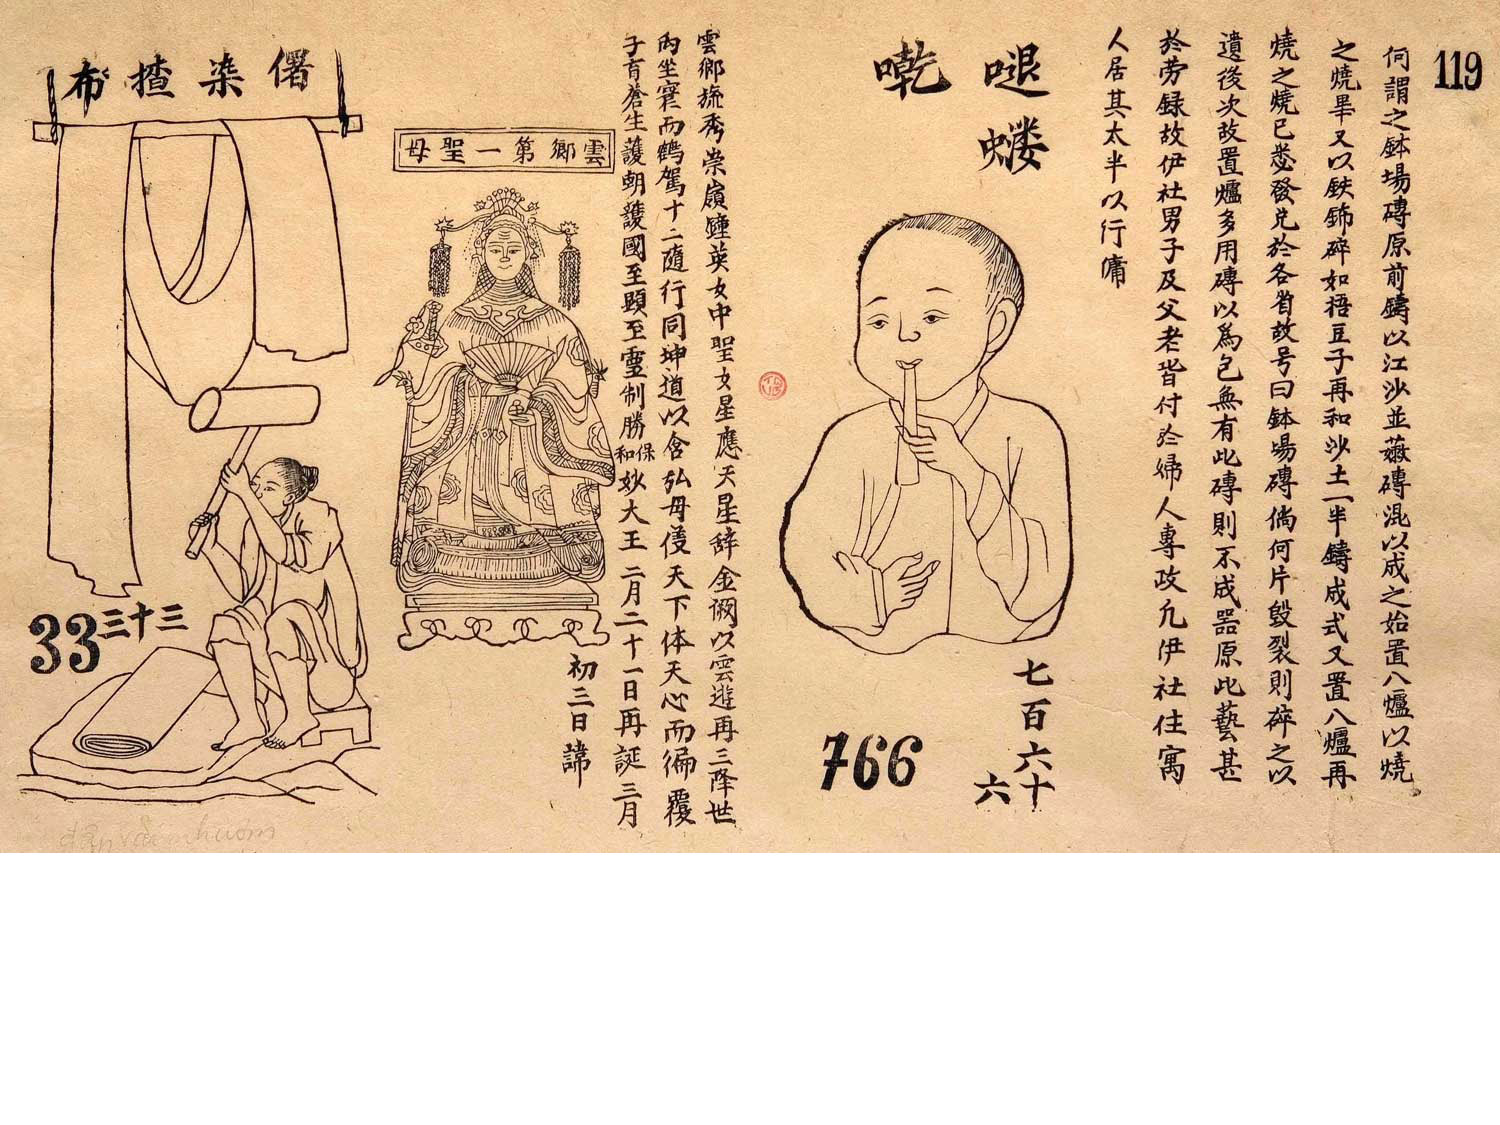 119
何謂之鉢場磚原前鑄以江沙並薇磚混以成之始置八爐以燒
之燒畢又以鉄篩碎如梧豆子再和沙土一半鑄成式又置八爐再
燒之燒已悉發兌於各省故号曰鉢場磚倘何片毀裂則碎之以
遺後次故置爐多用磚以為包無有此磚則不成器原此藝甚
於劳録故伊社男子及父老皆付於婦人專政凢伊社住寓
人居其太半以行傭
嗺
蝼
噋
七百六十
六
766
雲鄉旒秀崇嶺鍾英女中聖女星應天星辞金闕以雲遊再三降世
內坐寶而鶴駕十二隨行同坤道以含弘母侵天下体天心而徧覆
子育蒼生護朝護國至顯至靈制勝保和妙大王 二月二十一日再誕三月
初三日諱
雲鄉第一聖母
染揸布
三十三
33